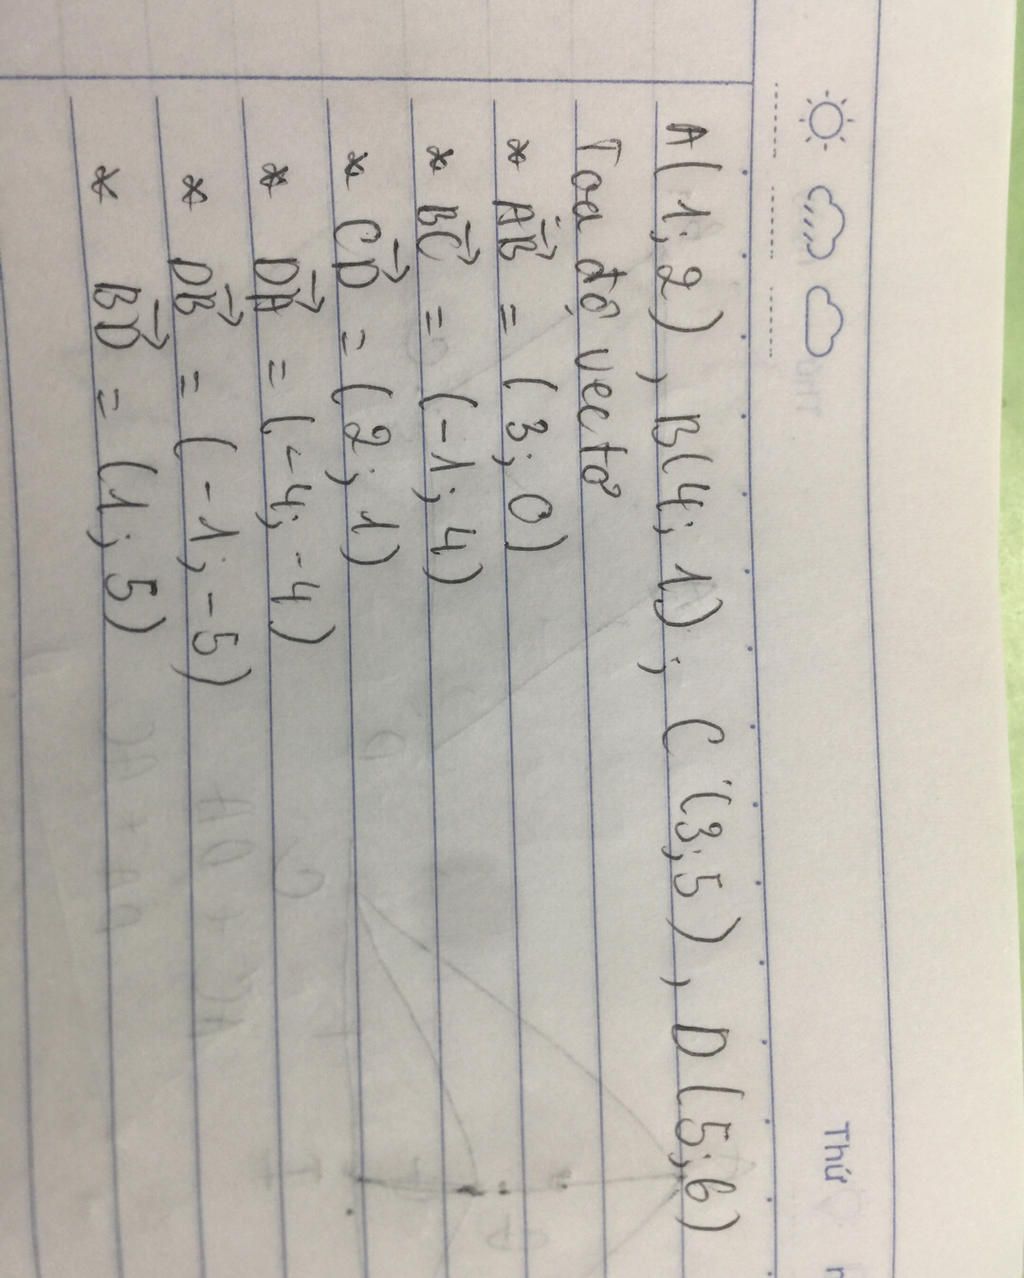 Thứ
A(1;2), B(4;1); C(3;5), D(5;6)
Toạ độ vectơ
* AB→ = (3;0)
* BC→ = (-1;4)
* CD→ = (2;1)
* DA→ = (-4;-4)
* DB→ = (-1;-5)
* BD→ = (1;5)